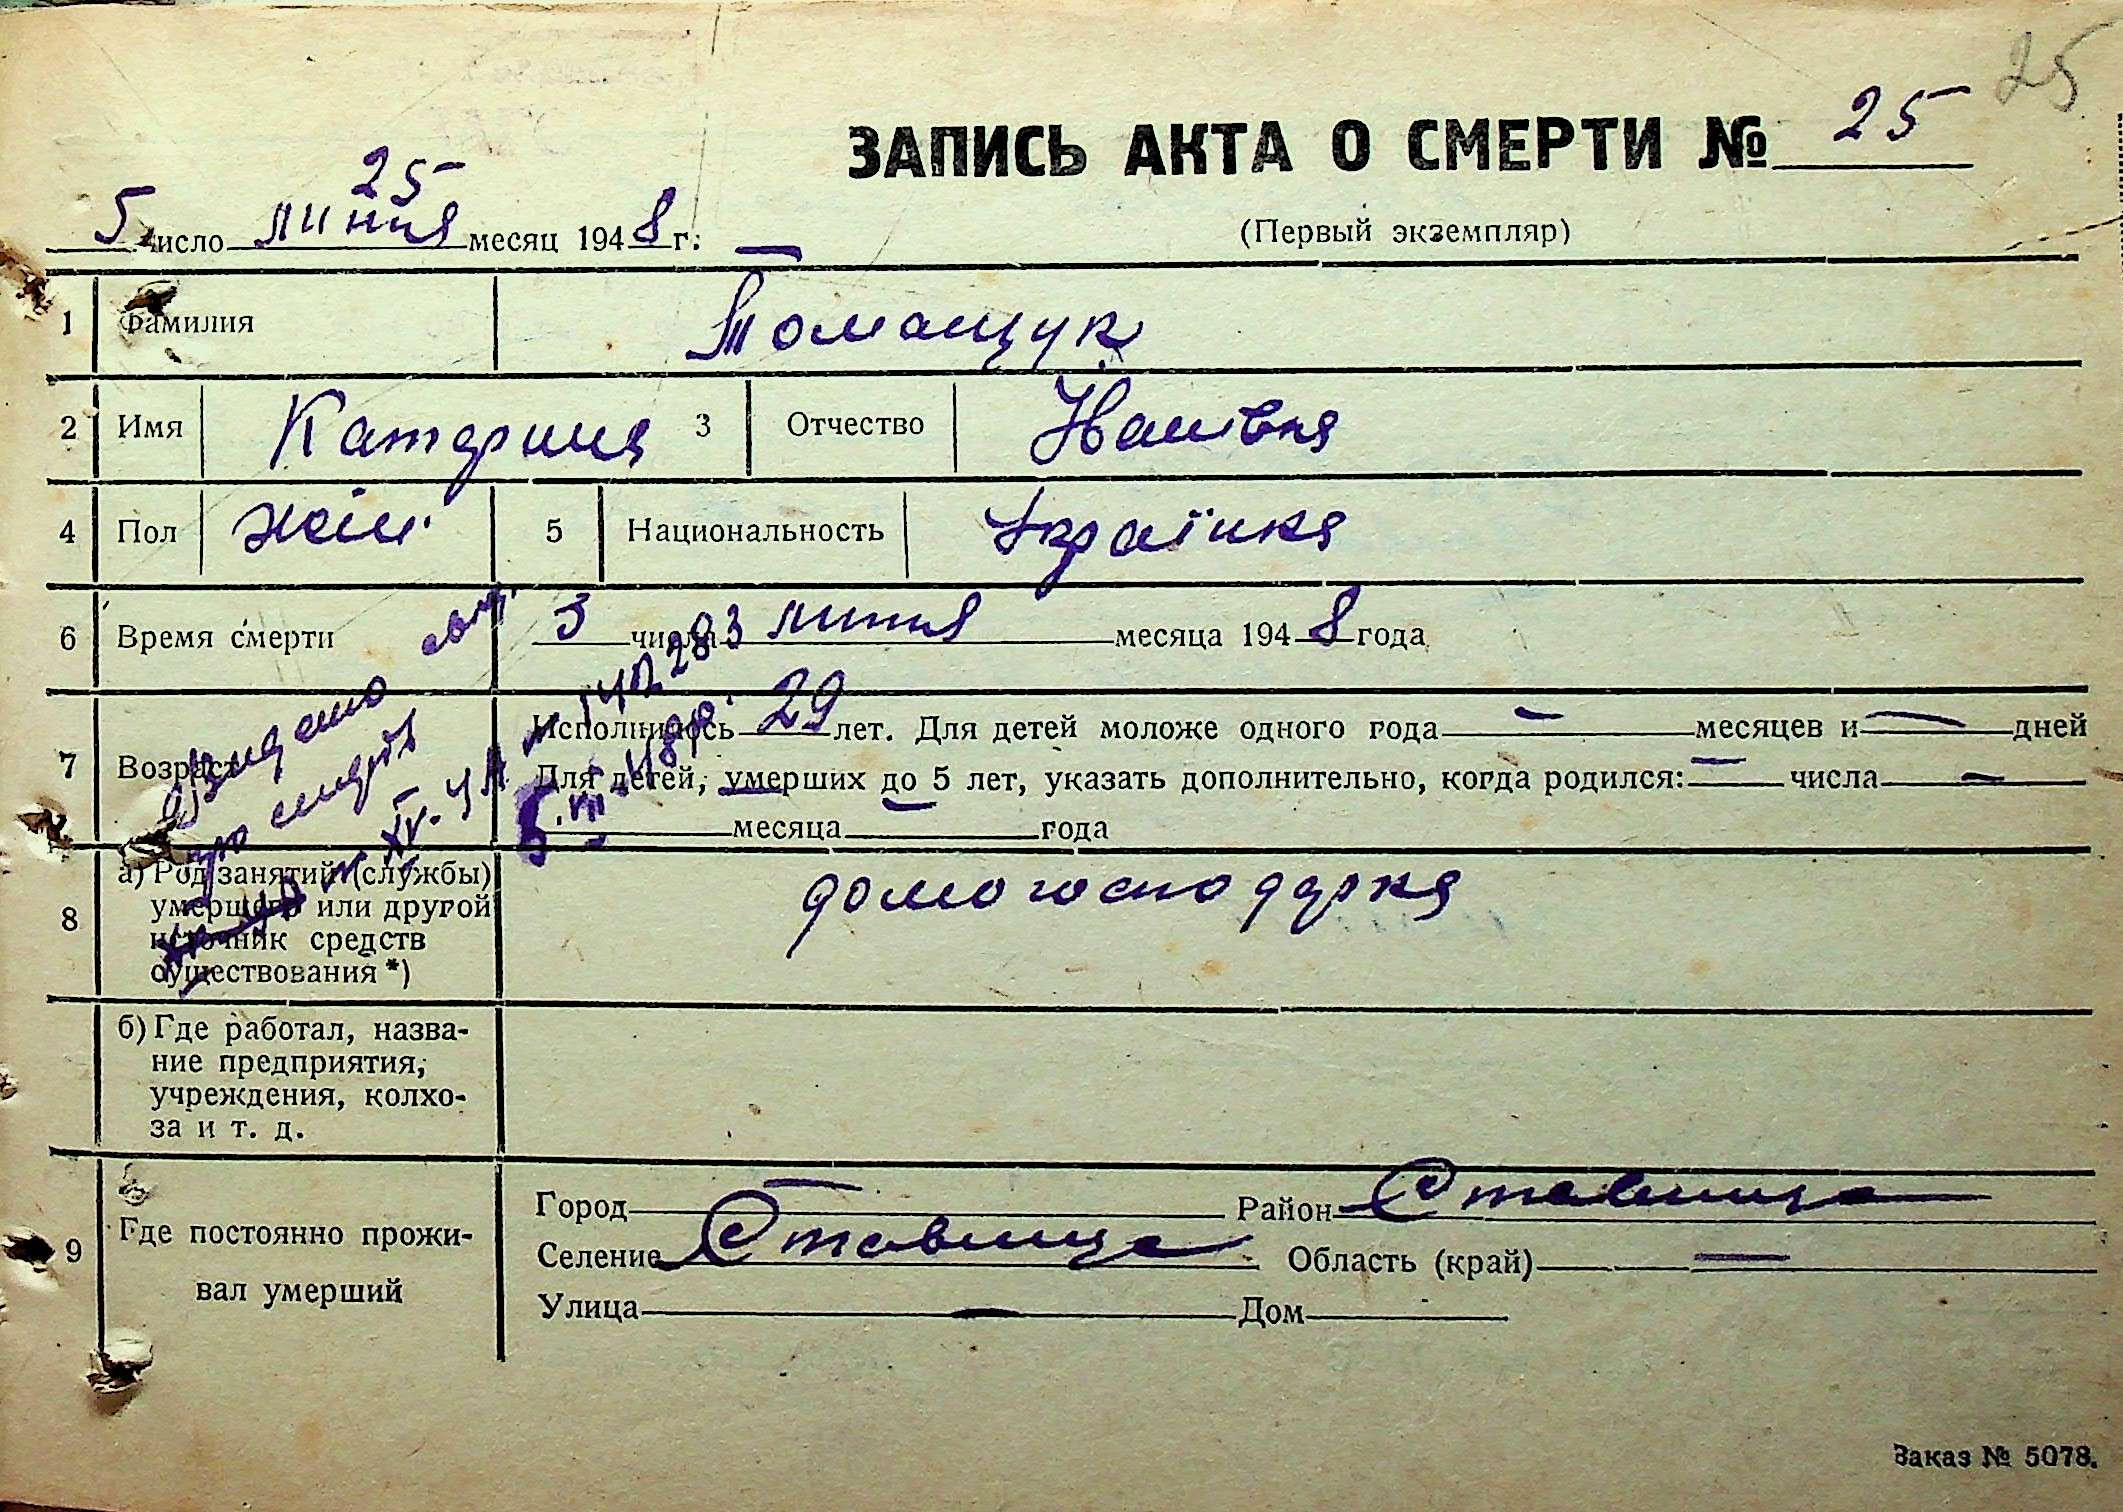 25
ЗАПИСЬ АКТА О СМЕРТИ № 25
25
5 число липня месяц 1948 г.
(Первый экземпляр)
1 Фамилия Томащук
2 Имя Катерина 3 Отчество
4 Пол жін. 5 Национальность Українка
6 Время смерти 3 числа липня месяца 1948 года
7 Возраст Исполнилось 29 лет. Для детей моложе одного года — месяцев и — дней
Для детей, умерших до 5 лет, указать дополнительно, когда родился: — числа —
— месяца — года
Видано свід.
про смерть
8 а) Род занятий (службы) домогосподарка
умершего или другой
источник средств
существования *)
б) Где работал, назва-
ние предприятия,
учреждения, колхо-
за и т. д.
9 Где постоянно прожи-
вал умерший
Город — Район Ставище
Селение Ставище Область (край) —
Улица — Дом
Заказ № 5078.